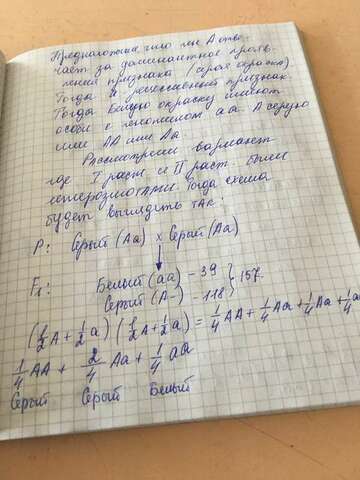 Предположим что ген А отве-
чает за доминантное прояв-
ления признака (серая окраска)
Тогда а рецессивный признак.
Тогда белую окраску имеют
особи с геномом аа. А серую
или АА или Аа.
Рассмотрим вариант
где I раст и II раст были
гетерозиготами. Тогда схема
будет выглядеть так:
P: Серый (Aa) x Серый (Aa)
F1: Белый (aa) - 39 } 157.
Серый (A-) - 118
(1/2 A + 1/2 a) (1/2 A + 1/2 a) = 1/4 AA + 1/4 Aa + 1/4 Aa + 1/4 a
1/4 AA + 2/4 Aa + 1/4 aa
Серый Серый Белый